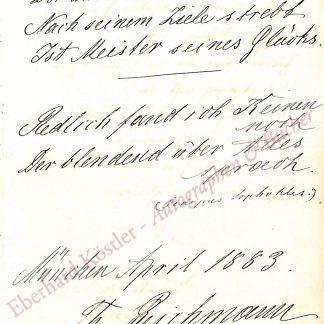 Nach seinem Ziele strebt
Ist Meister seines Glücks.
Redlich fand ich Keinen
noch
Der blendend über Alles
sprach.
Sophokles.)
München April 1883.
Th. Reichmann
Eberhard Köstler - Autographen & Bücher